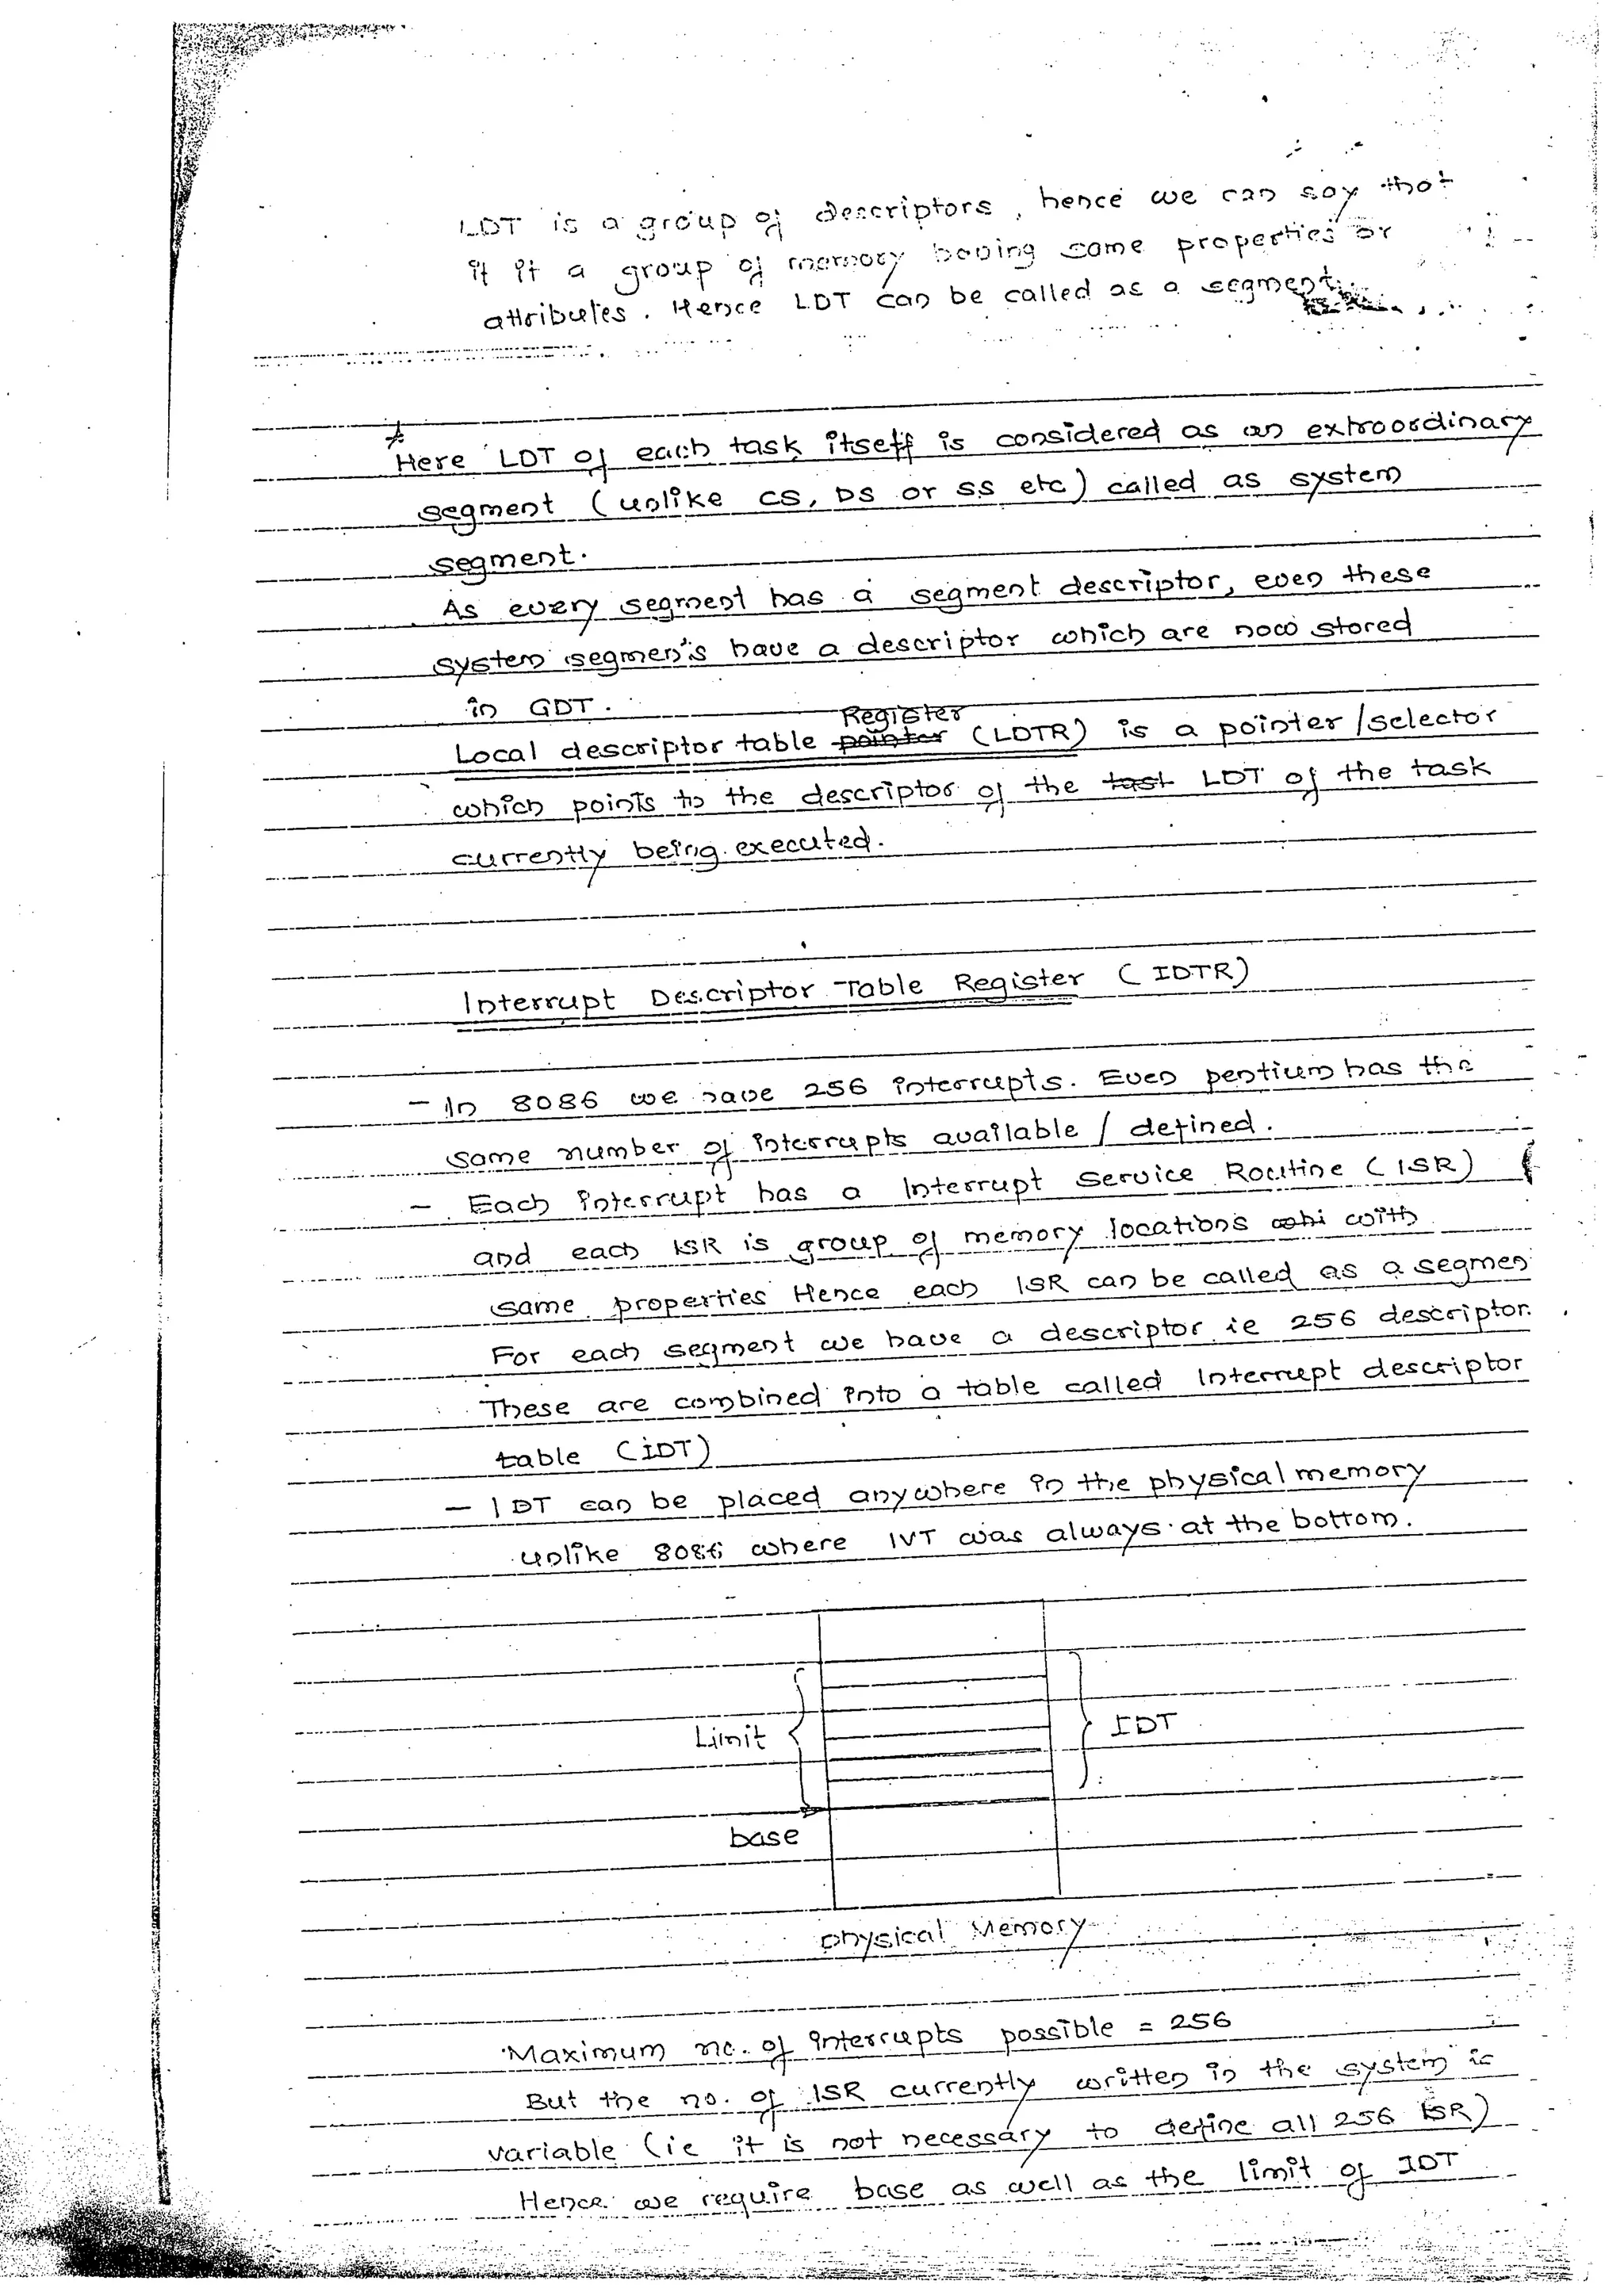 LDT is a group of descriptors, hence we can say that
it it a group of memory having same properties or
attributes. Hence LDT can be called as a segment.
* Here LDT of each task itself is considered as an extraordinary
segment (unlike CS, DS or SS etc) called as system
segment.
As every segment has a segment descriptor, even these
system segmen's have a descriptor which are now stored
in GDT.
Register
Local descriptor table pointer (LDTR) is a pointer/selector
which points to the descriptor of the tast LDT of the task
currently being executed.
Interrupt Descriptor Table Register (IDTR)
- In 8086 we have 256 interrupts. Even pentium has the
same number of interrupts available / defined.
- Each interrupt has a Interrupt Service Routine (ISR)
and each ISR is group of memory locations whi with
same properties Hence each ISR can be called as a segmen
For each segment we have a descriptor ie 256 descriptor.
These are combined into a table called Interrupt descriptor
table (IDT)
- IDT can be placed anywhere in the physical memory
unlike 8086 where IVT was always at the bottom.
Limit
IDT
base
physical Memory
Maximum no. of interrupts possible = 256
But the no. of ISR currently written in the system is
variable (ie it is not necessary to define all 256 ISR)
Hence we require base as well as the limit of IDT